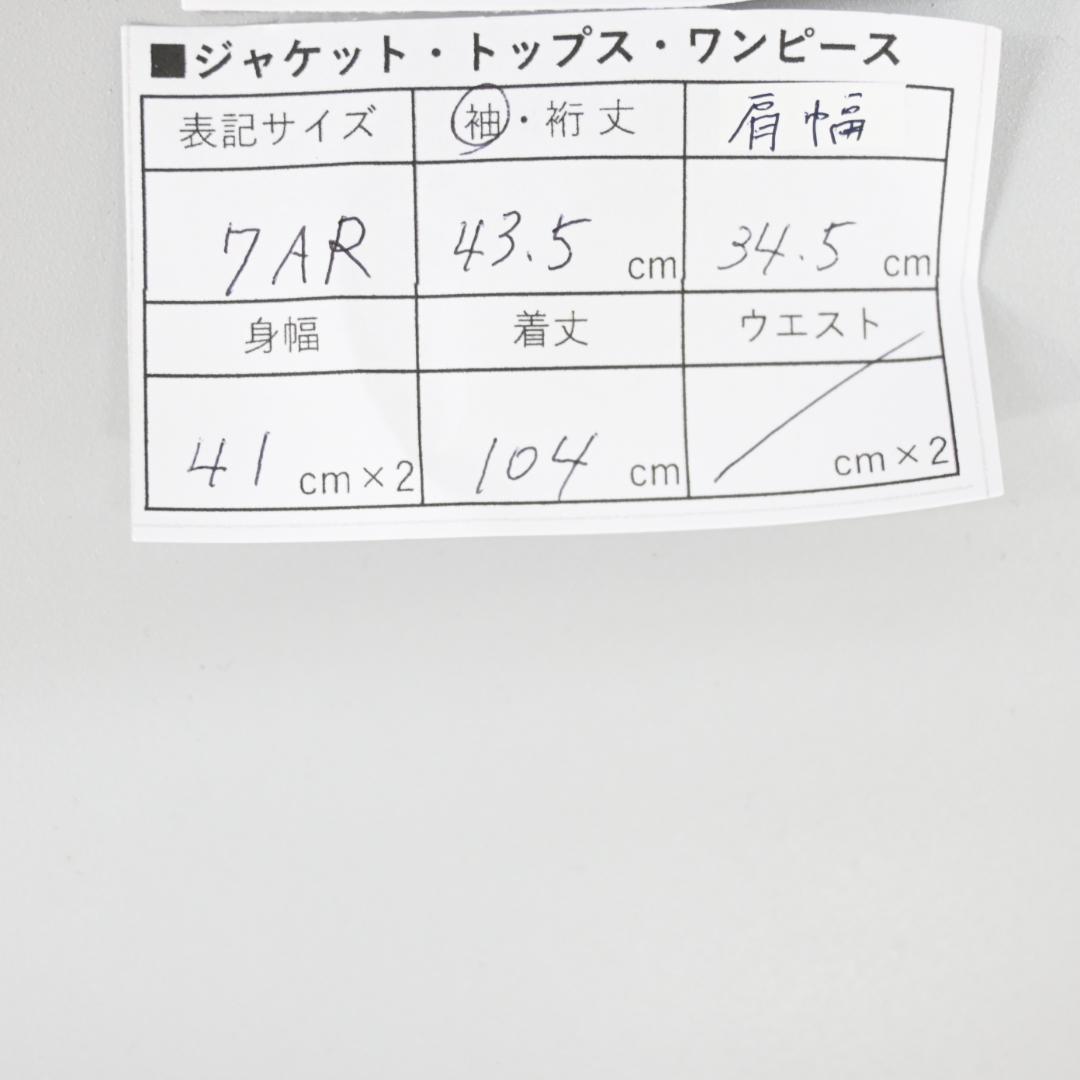 ■ジャケット・トップス・ワンピース
表記サイズ 袖・裄丈 肩幅
7AR 43.5 cm 34.5 cm
身幅 着丈 ウエスト
41 cm×2 104 cm cm×2